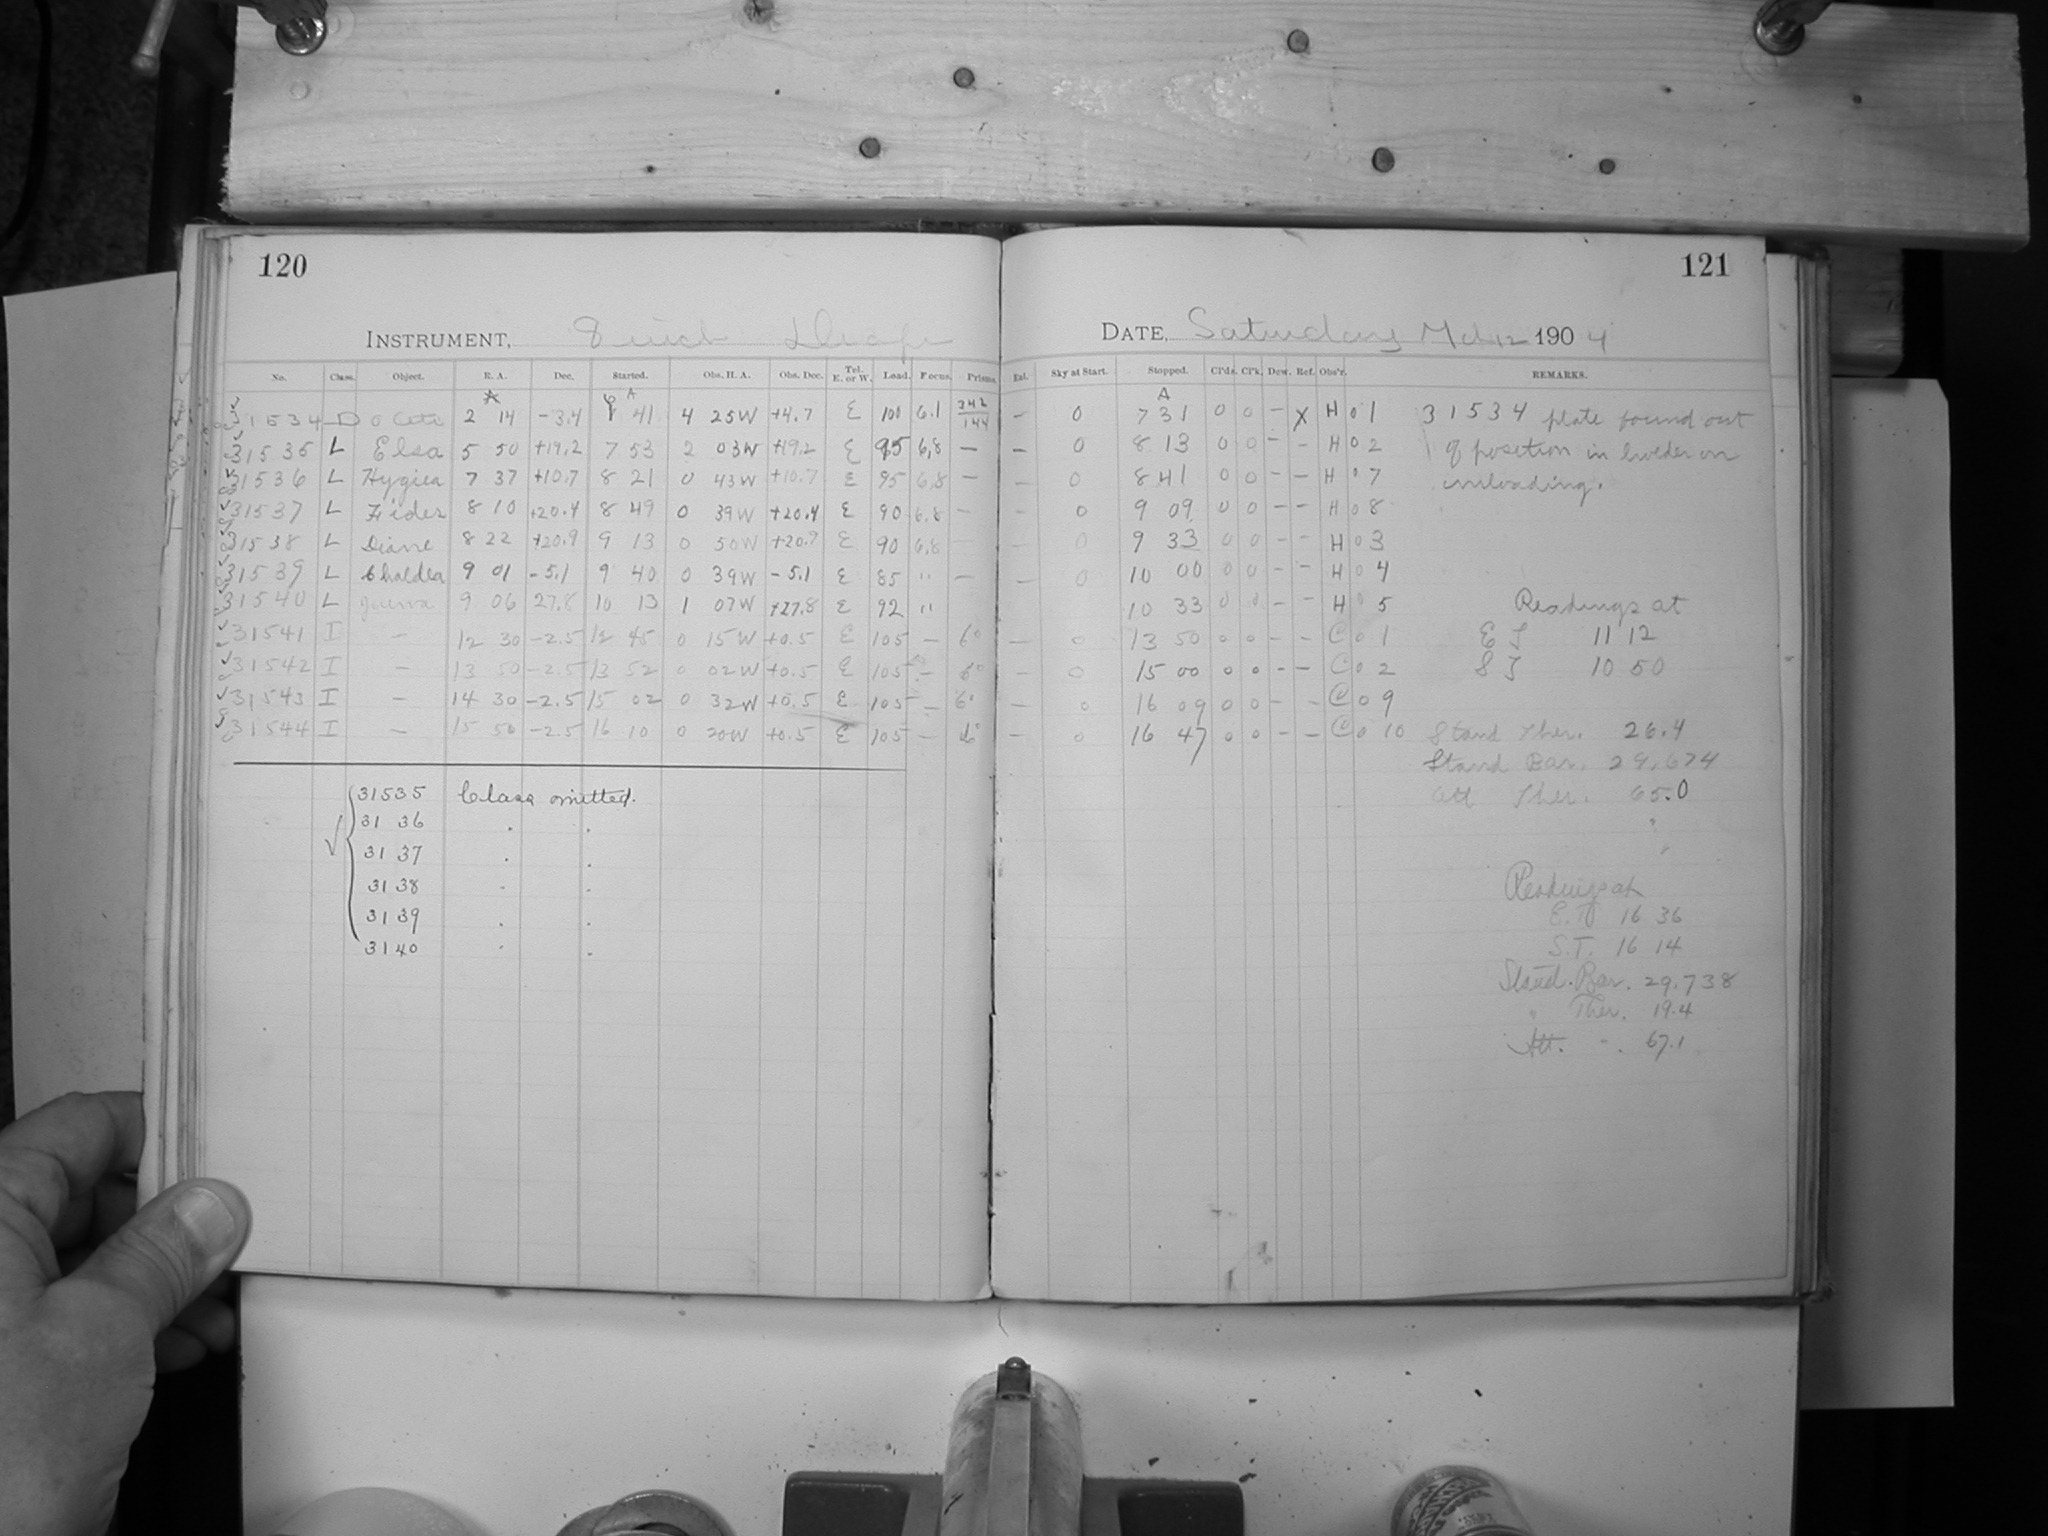 120
121
INSTRUMENT, 8 inch Draper
DATE, Saturday Mch 12 1904
No. Class. Object. R. A. Dec. Started. Obs. H. A. Obs. Dec. Tel. E. or W. Load. Focus. Prisms. Ext. Sky at Start. Stopped. Cl'ds. Cl'k. Dew. Ref. Obs'r. REMARKS.
31534 D o Ceti 2 14 -3.4 41 4 25W +4.7 E 100 6.1 342/144 - 0 7 31 0 0 - X H 0 1 31534 plate found out
31535 L Elsa 5 50 +19.2 7 53 2 03W +19.2 E 95 6,8 - - 0 8 13 0 0 - - H 0 2 of position in holder on
31536 L Hygiea 7 37 +10.7 8 21 0 43W +10.7 E 95 6,8 - - 0 8 41 0 0 - - H 0 7 unloading.
31537 L Fides 8 10 +20.4 8 49 0 39W +20.4 E 90 6,8 - - 0 9 09 0 0 - - H 0 8
31538 L Diane 8 22 +20.9 9 13 0 50W +20.9 E 90 6,8 - - 0 9 33 0 0 - - H 0 3
31539 L Chaldea 9 01 -5.1 9 40 0 39W -5.1 E 85 " - - 0 10 00 0 0 - - H 0 4
31540 L 9 06 27.8 10 13 1 07W +27.8 E 92 " 10 33 0 0 - - H 0 5 Readings at
31541 I - 12 30 -2.5 12 45 0 15W +0.5 E 105 - 6° - 0 13 50 0 0 - - C 0 1 E T 11 12
31542 I - 13 50 -2.5 13 52 0 02W +0.5 E 105 - 6° - 0 15 00 0 0 - - C 0 2 S T 10 50
31543 I - 14 30 -2.5 15 02 0 32W +0.5 E 105 - 6° - 0 16 09 0 0 - - C 0 9
31544 I - 15 50 -2.5 16 10 0 20W +0.5 E 105 - 6° - 0 16 47 0 0 - - C 0 10 Stand Ther. 26.4
Stand Bar. 29,674
Att Ther. 65.0
31535 Class omitted.
31 36 . .
31 37 . .
31 38 . .
31 39 . .
31 40 . .
Readings at
E.T 16 36
S.T. 16 14
Stand. Bar. 29.738
" Ther. 19.4
Att. " . 67.1